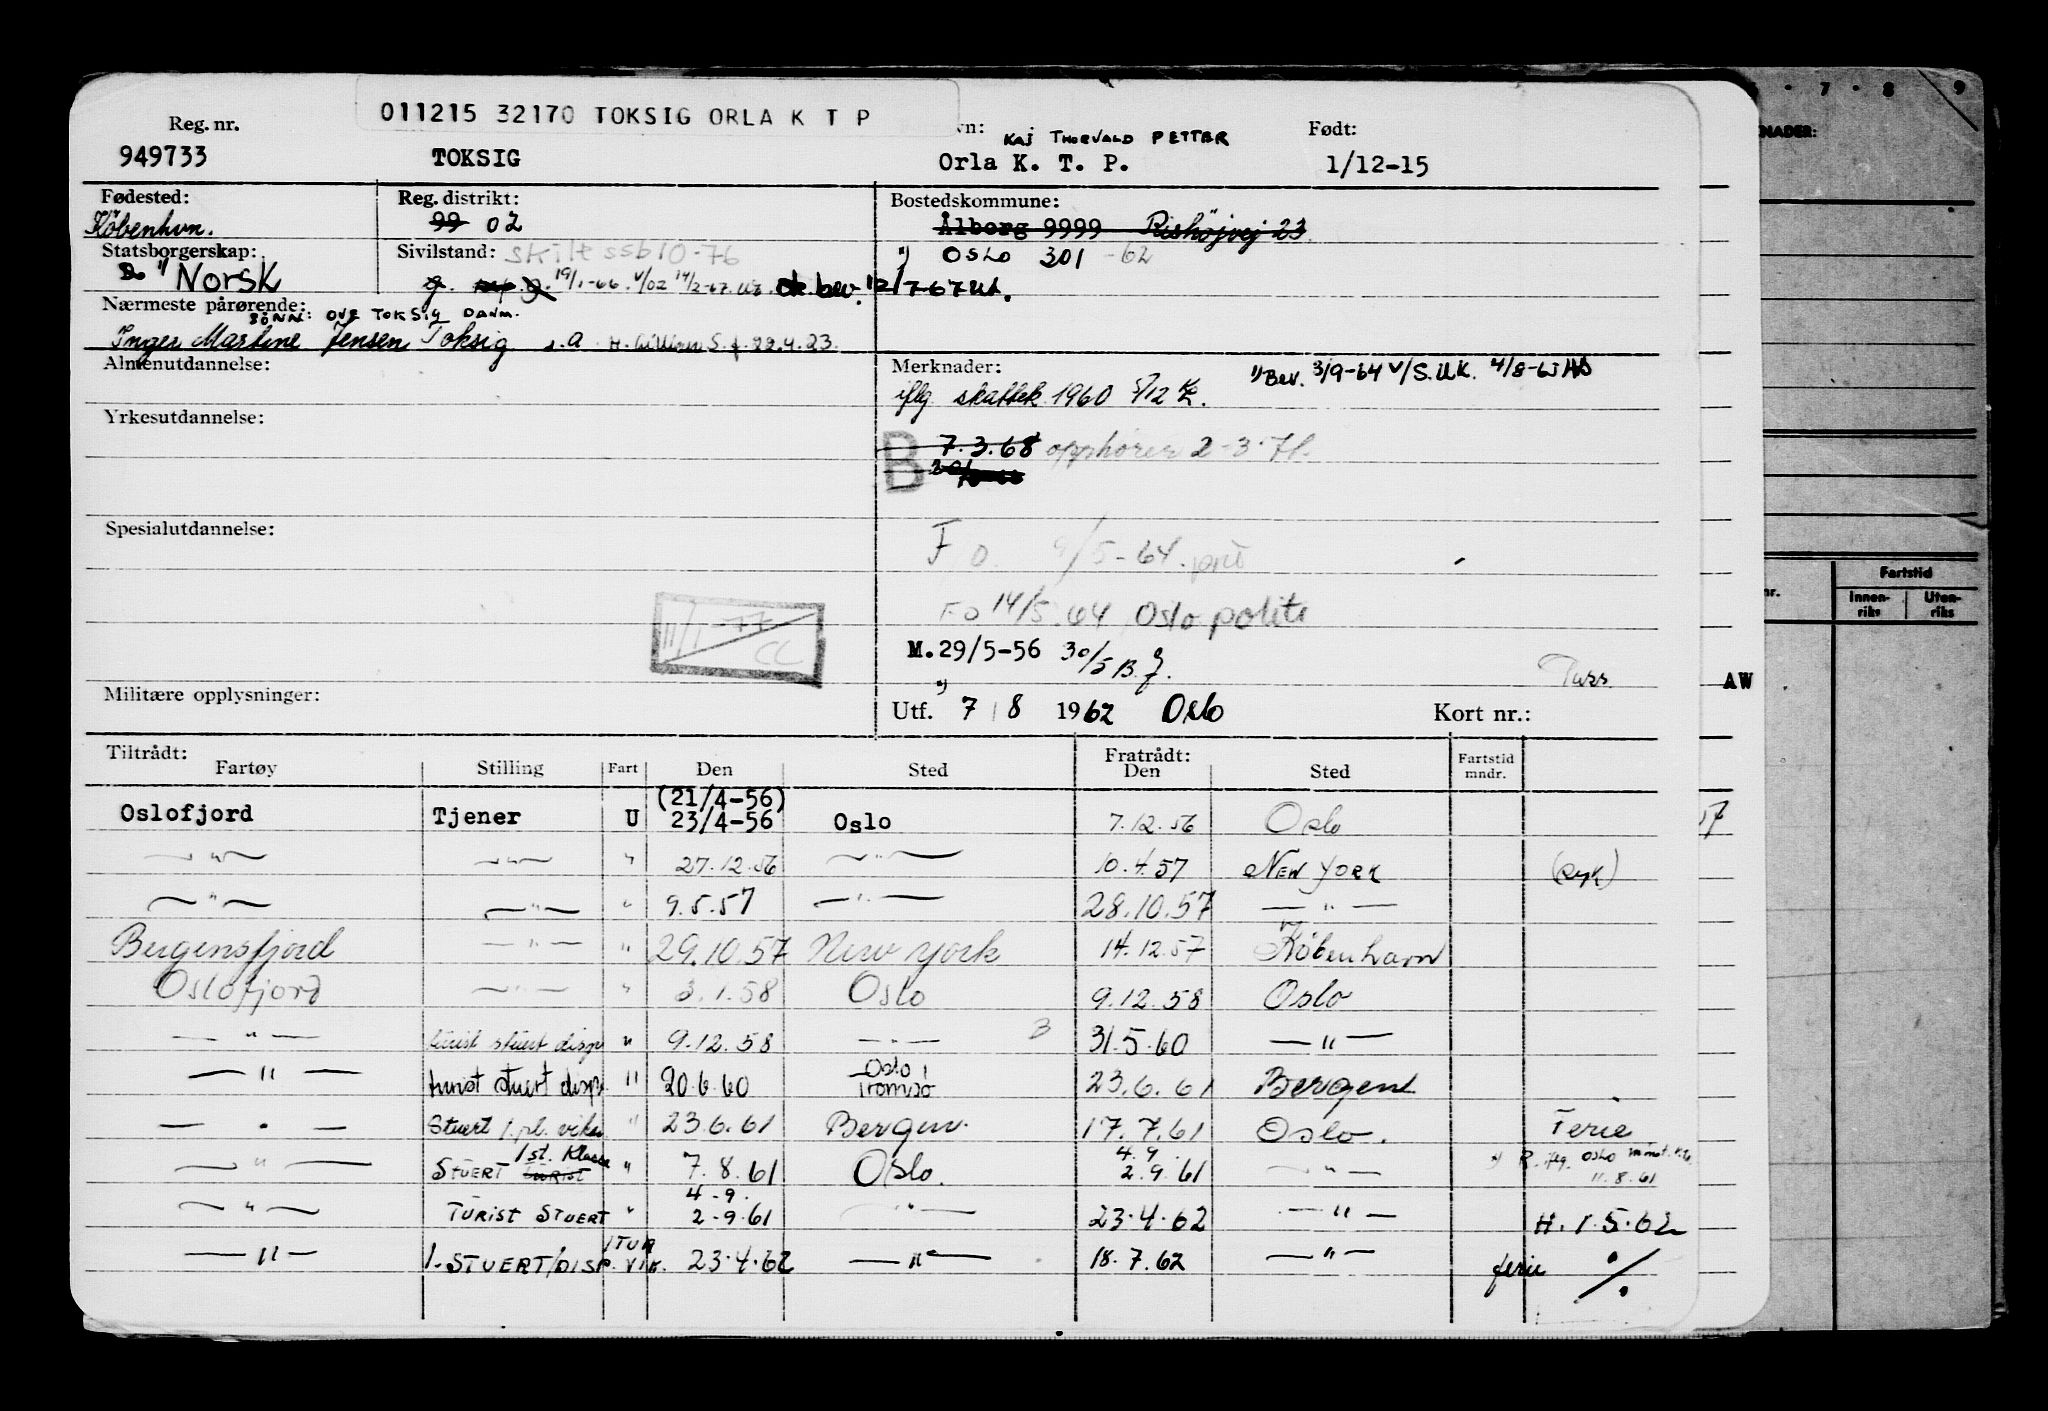 011215 32170 TOKSIG ORLA K T P
Reg. nr. vn: Født:
KAJ THORVALD PETTER
949733 TOKSIG Orla K. T. P. 1/12-15
Fødested: Reg. distrikt: Bostedskommune:
København. 99 02 Ålborg 9999 Rishöjvej 23
Statsborgerskap: Sivilstand: skilt ssb 10-76 OSLO 301 -62
1) Norsk g. 19/1-66 14/2-67 bev. 12/7 67
Nærmeste pårørende:
SÖNN: OVE TOKSIG DANM.
Inger Martine Jensen Toksig s.a f. 22.4.23.
Almenutdannelse: Merknader: 1) Bev. 3/9-64 v/S.U.K. 4/8-65
iflg skattek. 1960 5/12
Yrkesutdannelse:
B 7.3.68 opphører 2-3-71.
Spesialutdannelse:
F.O. 9/5-64.
FO 14/5.64 Oslo politi
11/1-77
CC
M. 29/5-56 30/5 B.
AW
Militære opplysninger: Utf. 7/8 1962 Oslo Kort nr.:
Tiltrådt: Fratrådt:
Fartøy Stilling Fart Den Sted Den Sted Fartstid mndr.
(21/4-56)
Oslofjord Tjener U 23/4-56 Oslo 7.12.56 Oslo
— " — — " — " 27.12.56 — " — 10.4.57 NEW YORK (syk)
— " — — " — " 9.5.57 — " — 28.10.57 — " —
Bergensfjord — " — " 29.10.57 New York 14.12.57 København
Oslofjord — " — " 3.1.58 Oslo 9.12.58 Oslo
— " — turist stuert disp " 9.12.58 — " — B 31.5.60 — " —
— " — turist stuert disp. " 20.6.60 Oslo / Tromsø 23.6.61 Bergen
— " — Stuert 1.pl. vikar " 23.6.61 Bergen. 17.7.61 Oslo. Ferie
1st. Klasse 4.9.
— " — STUERT TURIST " 7.8.61 Oslo. 2.9.61 — " — OSLO
11.8.61
4-9.
— " — TURIST STUERT " 2-9.61 — " — 23.4.62 — " — H. 1.5.62
1 TUR
— " — 1. STUERT/DISP. VIK. 23.4.62 — " — 18.7.62 — " — ferie ./.
6 · 7 · 8 9
NADER:
Fartstid
nr. Innenriks Utenriks